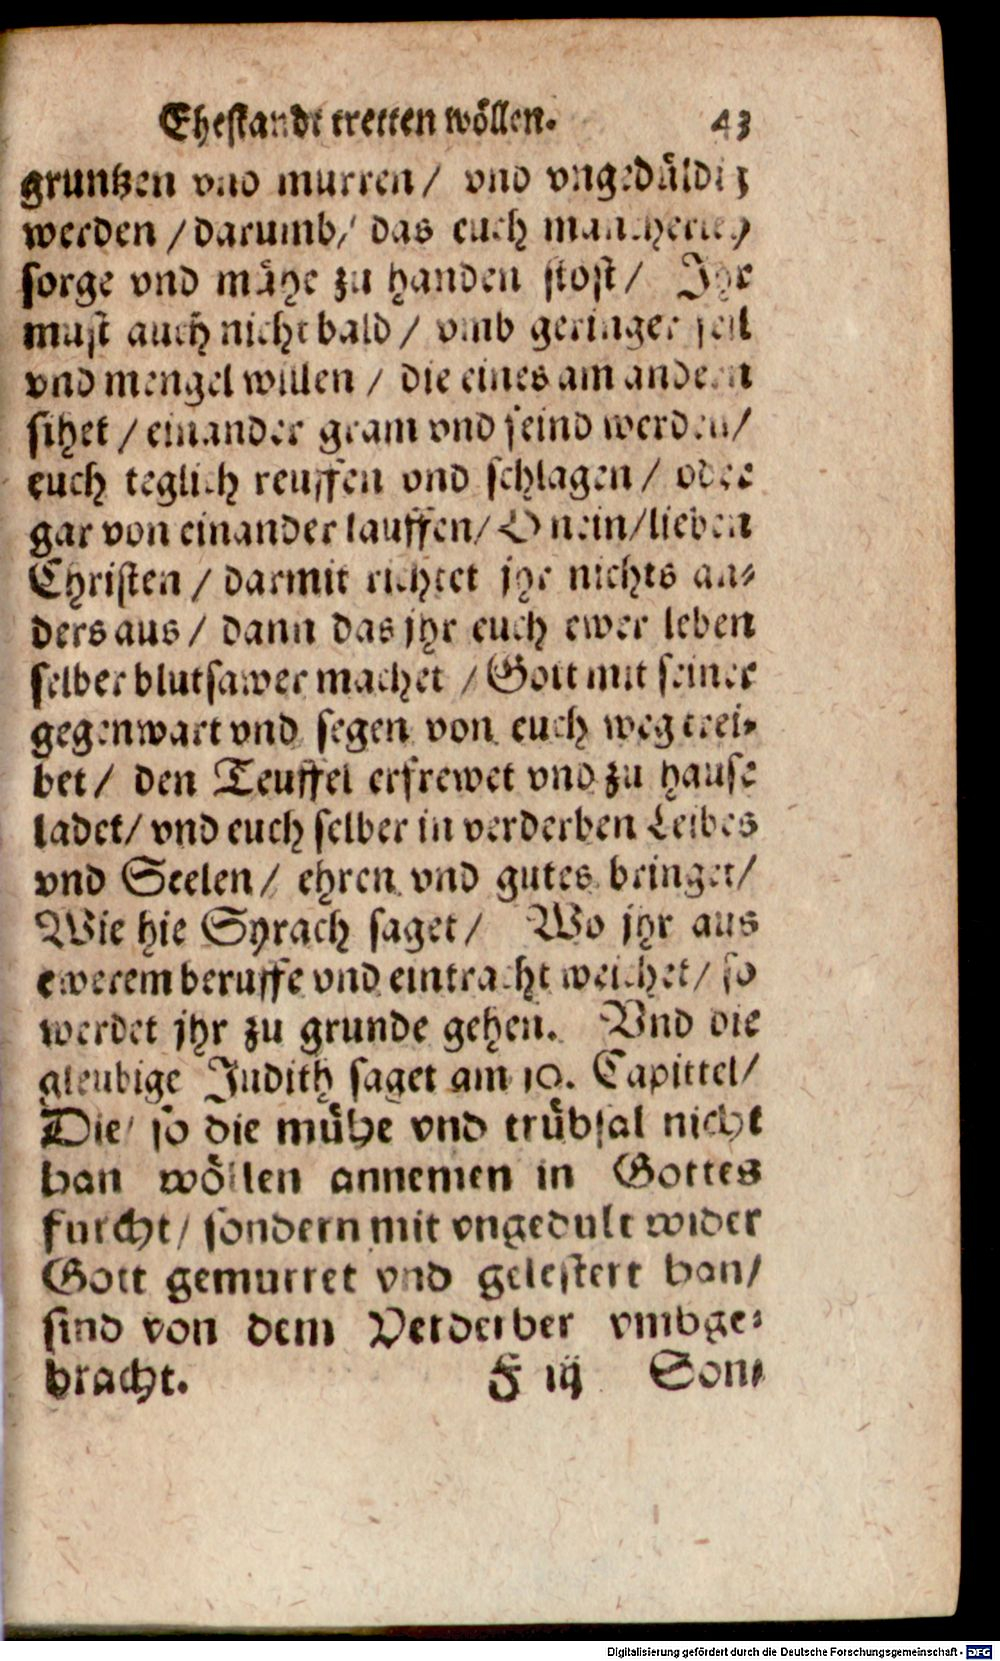 Ehestandt tretten wöllen. 43
gruntzen vnd murren / vnd vngedüldig
werden / darumb / das euch mancherley
sorge vnd mühe zu handen stost / Ihr
must auch nicht bald / vmb geringer feil
vnd mengel willen / die eines am andern
sihet / einander gram vnd feind werden /
euch teglich reuffen vnd schlagen / oder
gar von einander lauffen / O nein / lieben
Christen / darmit richtet jhr nichts an⸗
ders aus / dann das jhr euch ewer leben
selber blutsawer machet / Gott mit seiner
gegenwart vnd segen von euch weg trei⸗
bet / den Teuffel erfrewet vnd zu hause
ladet / vnd euch selber in verderben Leibes
vnd Seelen / ehren vnd gutes bringet /
Wie hie Syrach saget / Wo jhr aus
ewerem beruffe vnd eintracht weichet / so
werdet jhr zu grunde gehen. Vnd die
gleubige Judith saget am 10. Capittel /
Die / so die mühe vnd trübsal nicht
han wöllen annemen in Gottes
furcht / sondern mit vngedult wider
Gott gemurret vnd gelestert han /
sind von dem Verderber vmbge⸗
bracht. F iij Son⸗
Digitalisierung gefördert durch die Deutsche Forschungsgemeinschaft - DFG